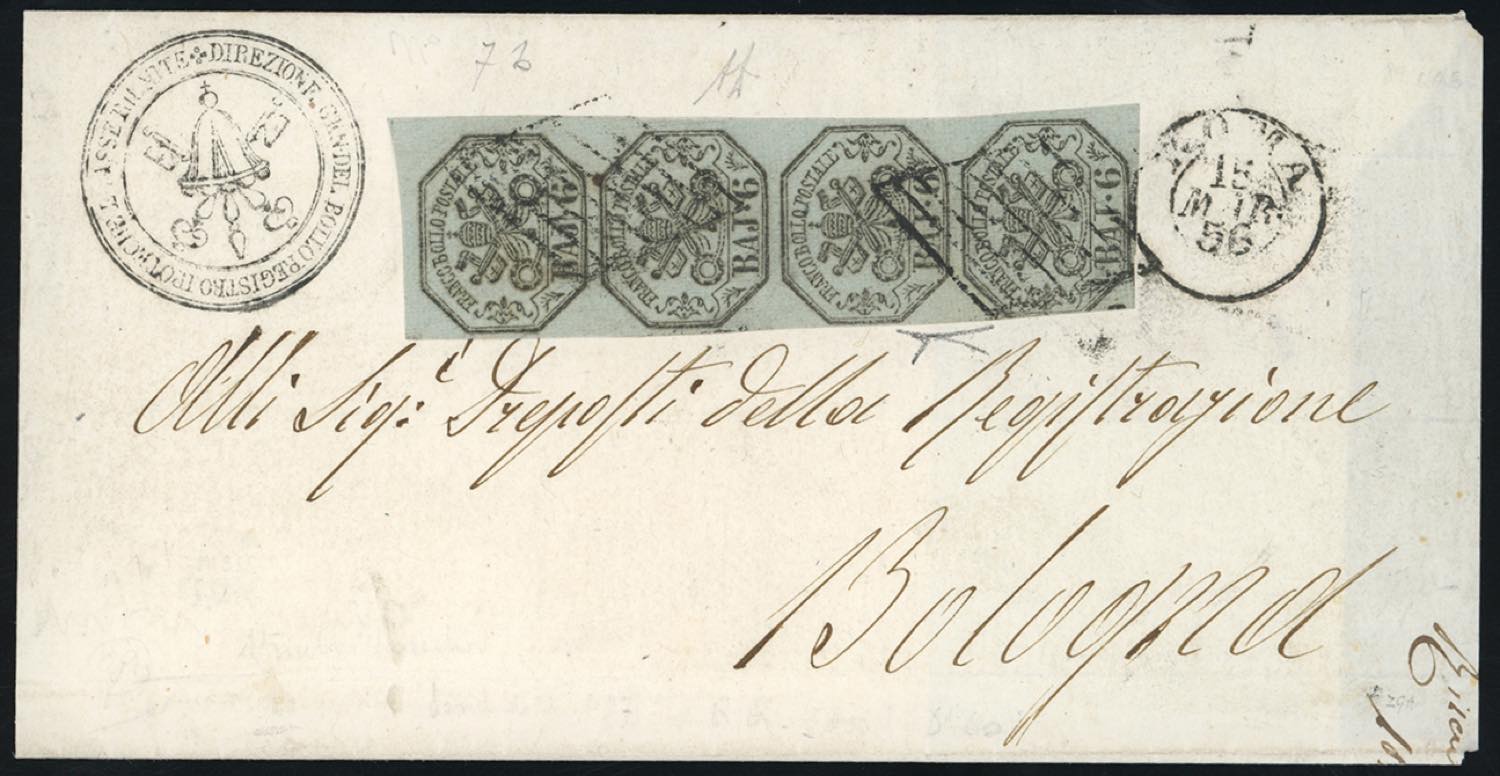 DIREZIONE GEN. DEL BOLLO REGISTRO IPOTECHE E TASSE RIUNITE
7 b
FRANCO BOLLO POSTALE
BAJ·6
FRANCO BOLLO POSTALE
BAJ·6
FRANCO BOLLO POSTALE
BAJ·6
FRANCO BOLLO POSTALE
BAJ·6
ROMA
15
MAR
56
Alli Sigi. Preposti della Registrazione
Bologna